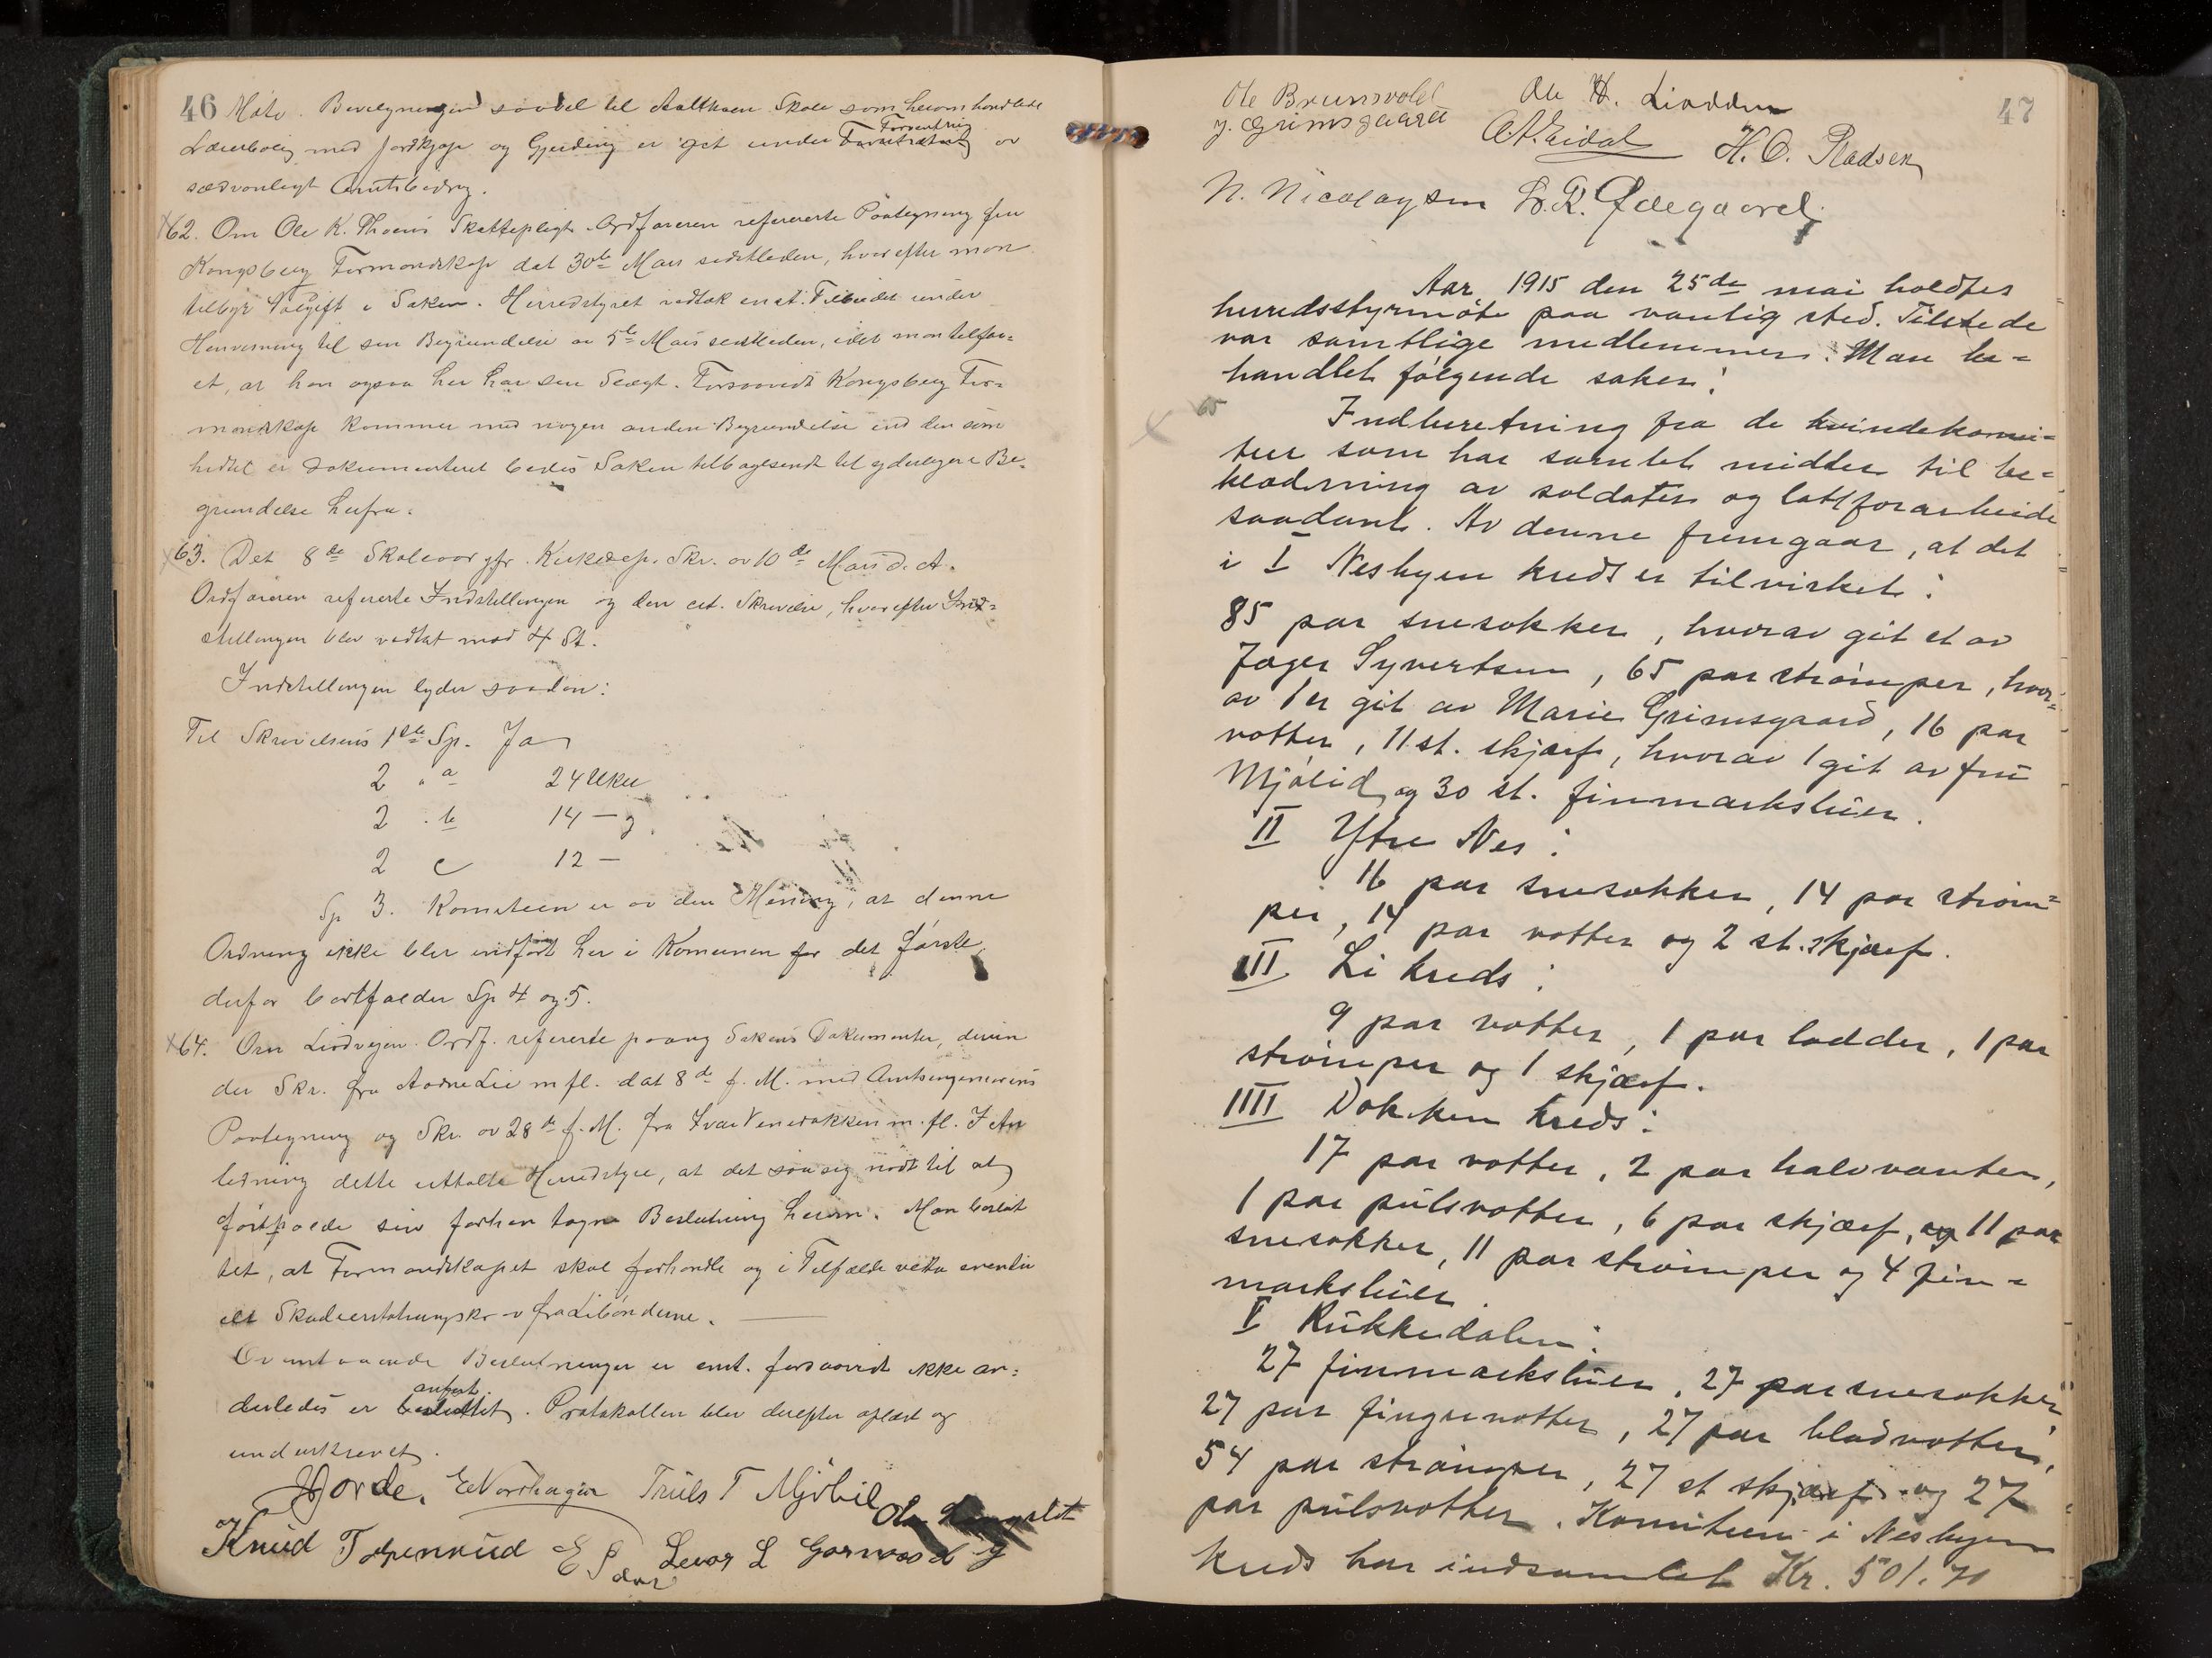 46 Møte. Bevilgningen saavel til Skole som heromhandlede
Lærerbolig med jordkjøp og Gjerding er git under Forventning av
sædvanligt Amtsbidrag.
62. Om Ole K. Thoens Skattepligt. Ordføreren refererte Paategning fra
Kongsberg Formandskap dat 30te Mars sidstleden, hvorefter man
tilbyr Volgift i Saken. Herredstyret vedtok enst. Tilbudet under
Henvisning til sin Begrundelse av 5te Mars sidstleden, idet man tilføi=
et, at han ogsaa her har sin Slægt. Forsaavidt Kongsberg For=
mandskap kommer med nogen anden Begrundelse end den som
hidtil er dokumenteret bedes Saken tilbagesendt til yderligere Be=
grundelse herfra.
63. Det 8de Skoleaar jfr. Kirkedep. Skr. av 10de Mars d. A.
Ordføreren refererte Indstillingen og den cit. Skrivelse, hvorefter Ind=
stillingen blev vedtat mod 4 St.
Indstillingen lyder saadan:
Til Skrivelsens 1ste Sp. Ja
2 " a 24 Uker
2 " b 14 —
2 c 12 —
Sp 3. Komiteen er av den Mening, at denne
Ordning ikke blir indført her i Komunen for det første,
derfor bortfalder Sp 4 og 5.
64. Om Liodvejen. Ordf. refererte paany Sakens Dokumenter, derun
der Skr. fra Aadne Lie m fl. dat 8de f. M. med Amtsingeniørens
Paategning og Skr. av 28de f. M. fra Ivar Venerakken m. fl. I An
ledning dette uttalte Herredstyre, at det saa sig nødt til at
fastholde sin forhen tagne Beslutning herom. Man beslut
tet, at Formandskapet skal forhandle og i Tilfælde vedta eventu
elt Skadeerstatningskrav fra Libønderne. —
Ovenstaaende Beslutninger er enst. forsaavidt ikke an=
derledes er anført. Protokollen blev derefter oplæst og
underskrevet.
Hjorde. E Nordhagen Truls T Mjøbil Ole
Knud Torpenrud E S Levor L Garnaas og
47
Ole Brunsvold Ole H. Liodden
J. Grimsgaard A. Eidal H. O. Pladsen
N. Nicolaysen L. R. Ødegaard.
Aar 1915 den 25de mai holdtes
herredsstyrmøte paa vanlig sted. Tilstede
var samtlige medlemmer. Man be=
handlet følgende saker:
65 Indberetning fra de kvindekomi=
teer som har samlet midler til be=
klædning av soldater og latt forarbeide
saadant. Av denne fremgaar, at det
i I Nesbyen kreds er tilvirket:
85 par snesokker, hvorav git et av
Jæger Syvertsen, 65 par strømper, hvor=
av 1 er git av Marie Grimsgaard, 16 par
votter, 11 st. skjærf, hvorav 1 git av fru
Mjølid, og 30 st. finmarksluer.
II Ytre Nes:
16 par snesokker, 14 par strøm=
per, 14 par votter og 2 st. skjærf.
III Li kreds:
9 par votter, 1 par lodder, 1 par
strømper og 1 skjærf.
IIII Dokken kreds:
17 par votter, 2 par halvvanter,
1 par pulsvotter, 6 par skjærf, og 11 par
snesokker, 11 par strømper og 4 fin=
marksluer.
V Rukkedalen:
27 finmarksluer, 27 par snesokker,
27 par fingervotter, 27 par bladvotter,
54 par strømper, 27 st skjærf og 27
par pulsvotter. Komiteen i Nesbyen
kreds har indsamlet Kr. 501.70